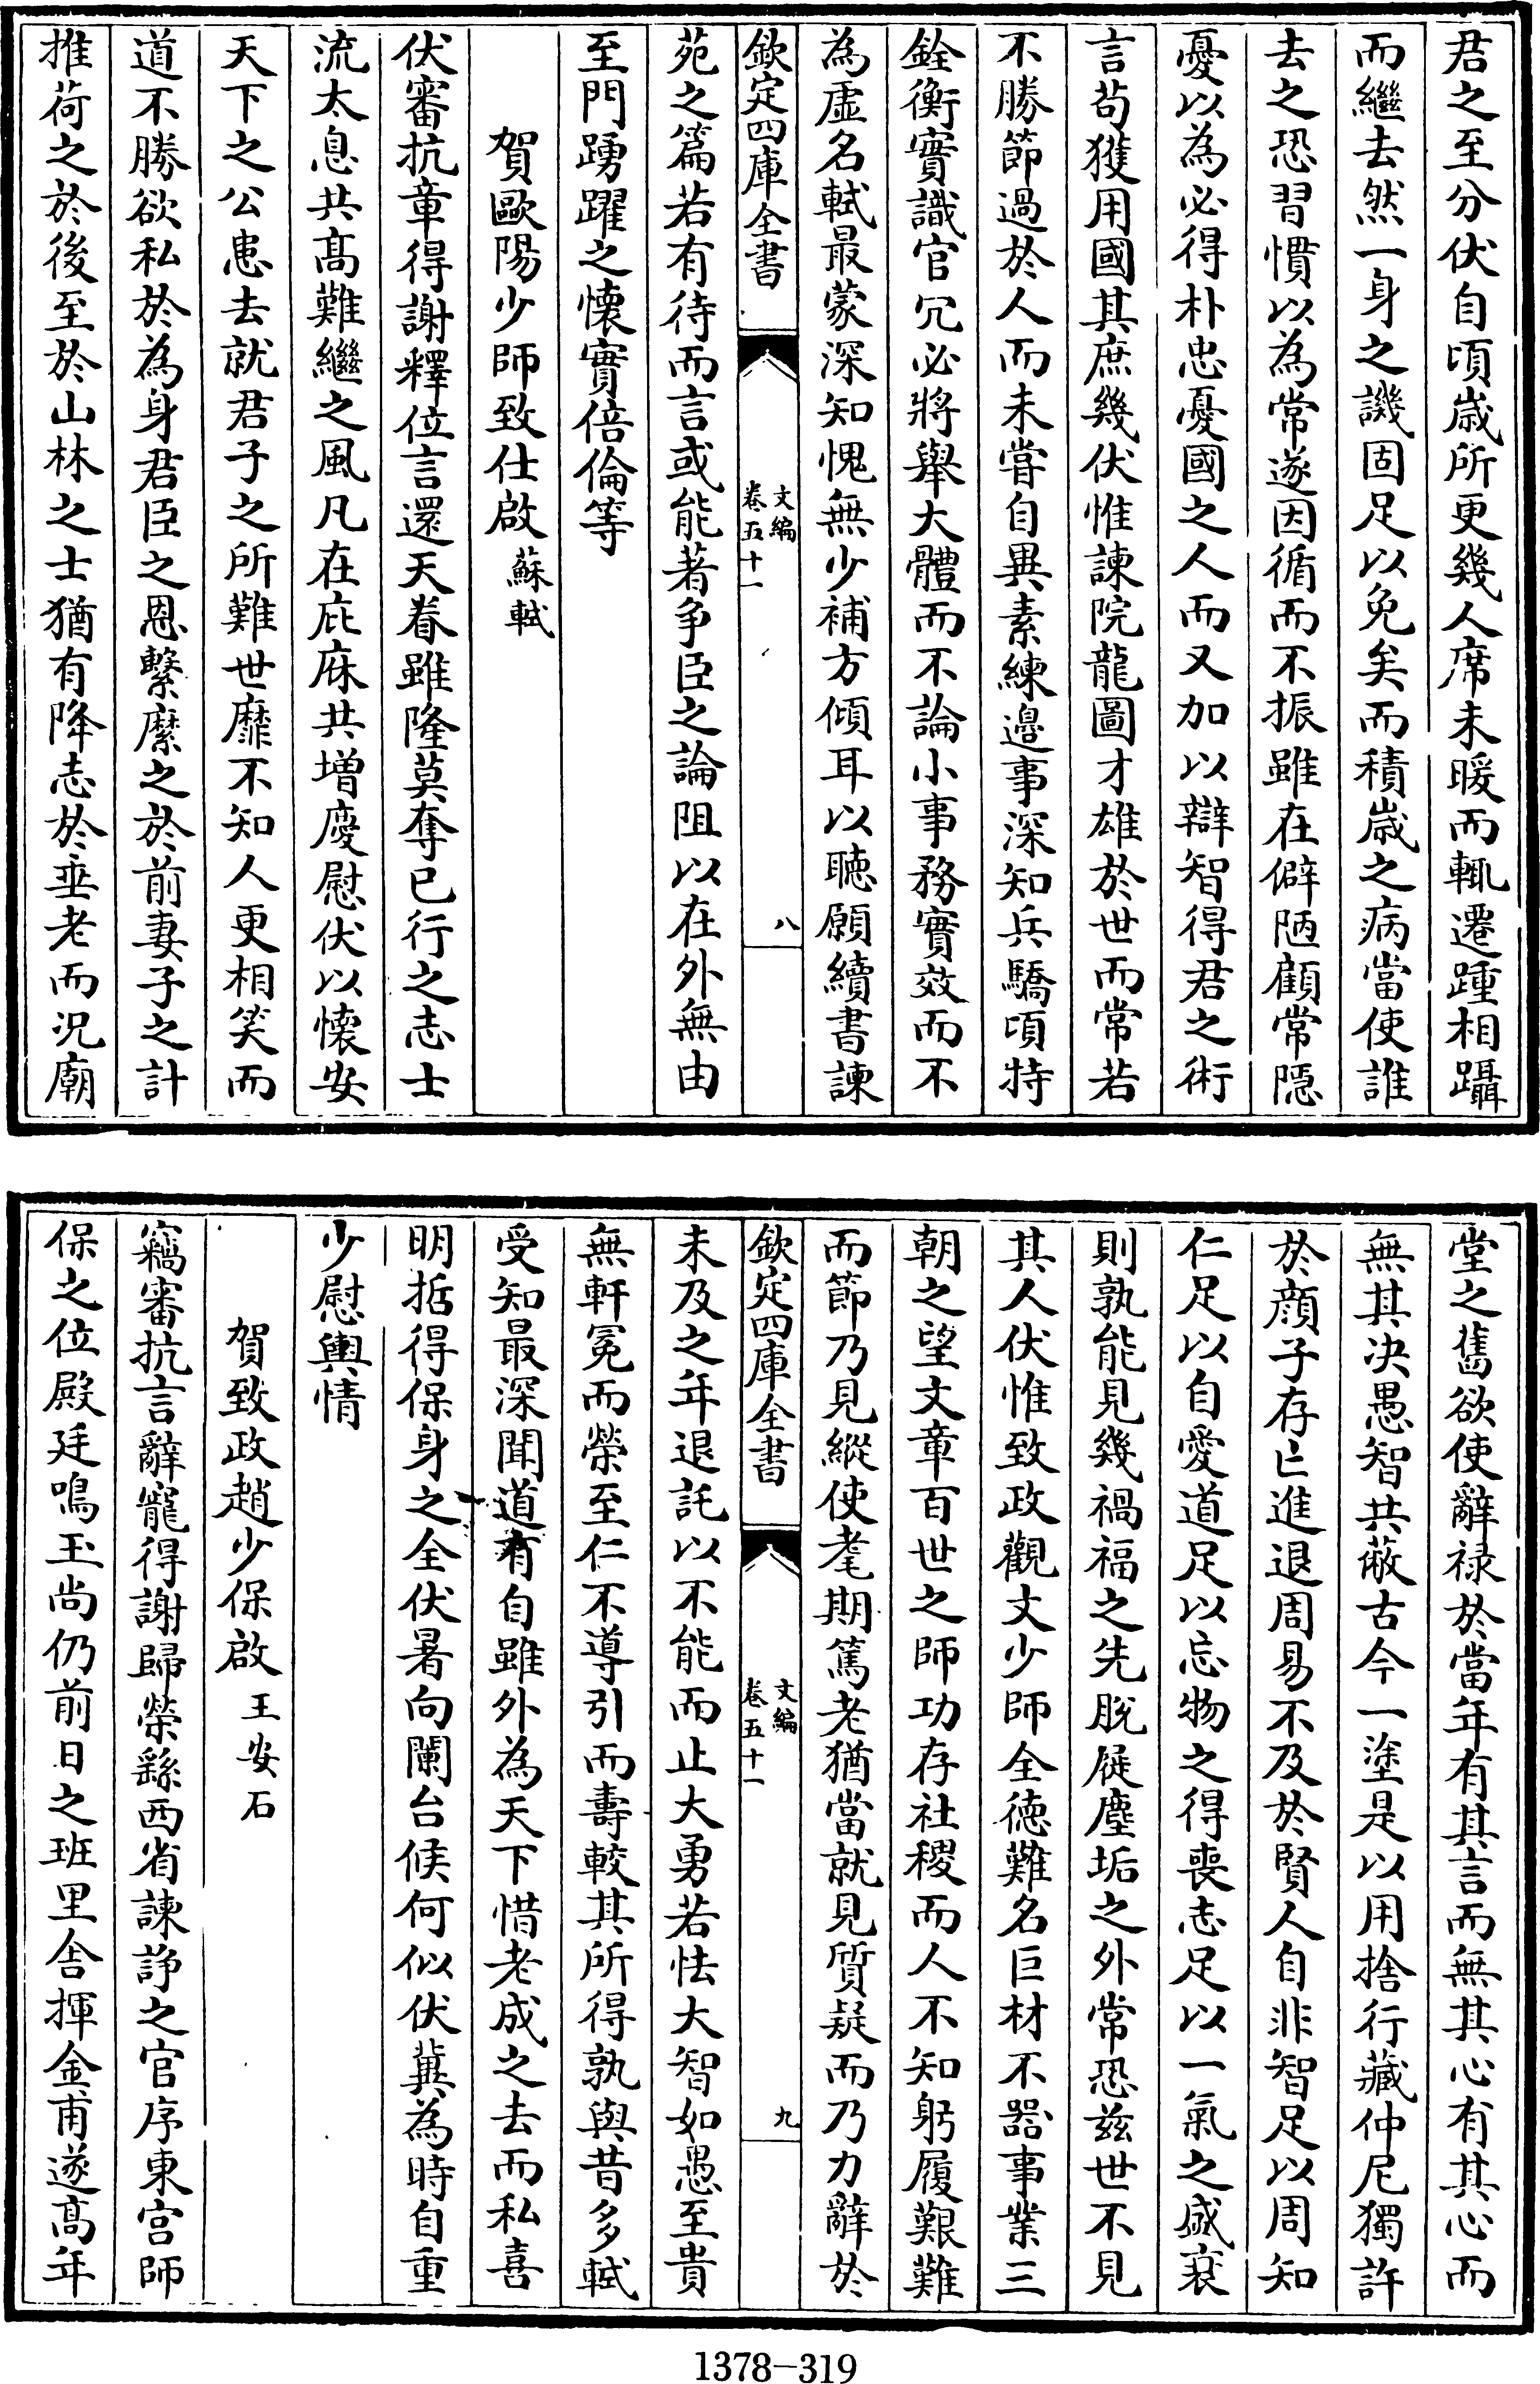 君之至分伏自頃歲所更幾人席未暖而輒遷踵相躡
而繼去然一身之譏固足以免矣而積歲之病當使誰
去之恐習慣以為常遂因循而不振雖在僻陋顧常隱
憂以為必得朴忠憂國之人而又加以辯智得君之術
言苟獲用國其庶幾伏惟諫院龍圖才雄於世而常若
不勝節過於人而未嘗自異素練邊事深知兵驕頃特
銓衡實識官冗必將舉大體而不論小事務實效而不
為虛名軾最蒙深知愧無少補方傾耳以聽願續書諫
欽定四庫全書
文編
卷五十一
八
苑之篇若有待而言或能著爭臣之論阻以在外無由
至門踴躍之懷實倍倫等
賀歐陽少師致仕啟 蘇軾
伏審抗章得謝釋位言還天眷雖隆莫奪已行之志士
流太息共髙難繼之風凡在庇庥共增慶慰伏以懷安
天下之公患去就君子之所難世靡不知人更相笑而
道不勝欲私於為身君臣之恩繫縻之於前妻子之計
推荷之於後至於山林之士猶有降志於垂老而況廟
堂之舊欲使辭禄於當年有其言而無其心有其心而
無其決愚智共蔽古今一塗是以用捨行藏仲尼獨許
於顔子存亡進退周易不及於賢人自非智足以周知
仁足以自愛道足以忘物之得喪志足以一氣之盛衰
則孰能見幾禍福之先脫屣塵垢之外常恐兹世不見
其人伏惟致政觀文少師全德難名巨材不器事業三
朝之望文章百世之師功存社稷而人不知躬履艱難
而節乃見縱使耄期篤老猶當就見質疑而乃力辭於
欽定四庫全書
文編
卷五十一
九
未及之年退託以不能而止大勇若怯大智如愚至貴
無軒冕而榮至仁不導引而壽較其所得孰與昔多軾
受知最深聞道有自雖外為天下惜老成之去而私喜
明哲得保身之全伏暑向闌台候何似伏冀為時自重
少慰輿情
賀致政趙少保啟 王安石
竊審抗言辭寵得謝歸榮繇西省諫諍之官序東宫師
保之位殿廷鳴玉尚仍前日之班里舍揮金甫遂髙年
1378-319